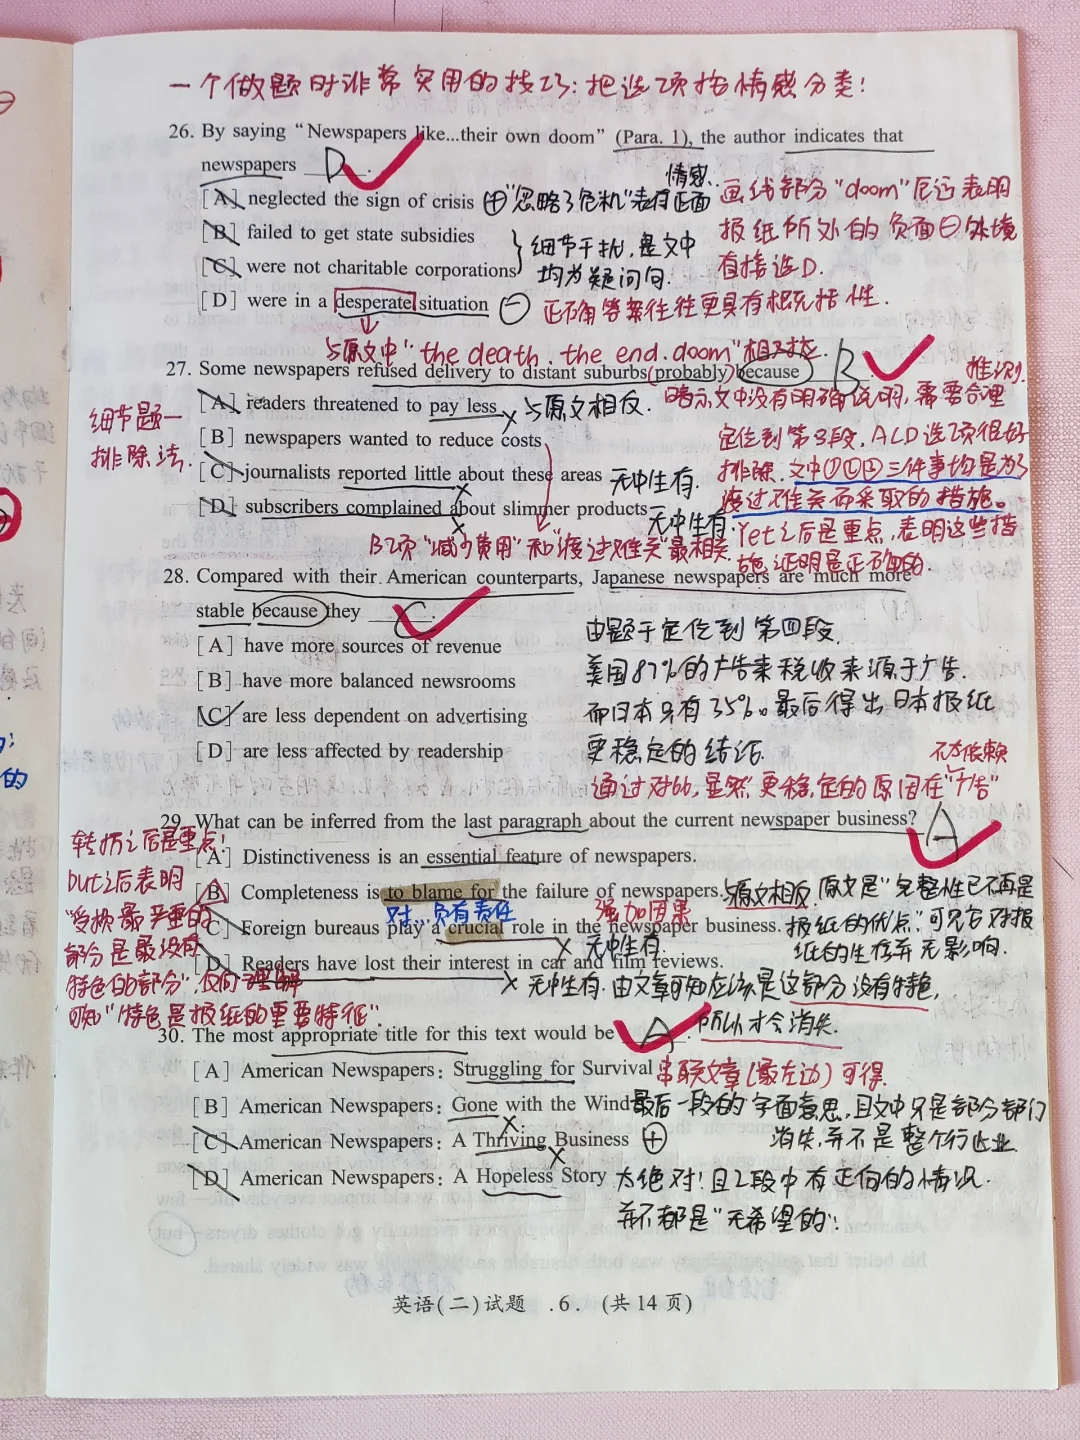 一个做题时非常实用的技巧:把选项按情感分类!
26. By saying “Newspapers like…their own doom” (Para. 1), the author indicates that
newspapers D.
[A] neglected the sign of crisis ⊕"忽略了危机"表存正面
情感.
[B] failed to get state subsidies
[C] were not charitable corporations
细节干扰,是文中
均为疑问句.
[D] were in a desperate situation ⊖ 正确答案往往更具有概括性.
画线部分"doom"厄运表明
报纸所处的负面⊖处境
直接选D.
与原文中"the death. the end. doom"相对应.
27. Some newspapers refused delivery to distant suburbs (probably) because B.
推测.
细节题一
排除法.
[A] readers threatened to pay less × 与原文相反.
[B] newspapers wanted to reduce costs
[C] journalists reported little about these areas 无中生有.
[D] subscribers complained about slimmer products 无中生有.
B项"减少费用"和"度过难关"最相关.
暗示文中没有明确说明,需要合理
定位到第3段. ACD选项很好
排除.文中①②③三件事均是为了
度过难关而采取的措施。
Yet之后是重点,表明这些措
施,证明是正确的.
28. Compared with their American counterparts, Japanese newspapers are much more
stable because they C.
[A] have more sources of revenue
[B] have more balanced newsrooms
[C] are less dependent on advertising
[D] are less affected by readership
由题干定位到第四段.
美国87%的广告来税收来源于广告.
而日本只有35%。最后得出日本报纸
更稳定的结论.
不太依赖
通过对比,显然更稳定的原因在"广告"
29. What can be inferred from the last paragraph about the current newspaper business? A
[A] Distinctiveness is an essential feature of newspapers.
[B] Completeness is to blame for the failure of newspapers.
对…负有责任
强加因果
[C] Foreign bureaus play a crucial role in the newspaper business.
无中生有.
[D] Readers have lost their interest in car and film reviews.
与原文相反.原文是"完整性已不再是
报纸的优点."可见它对报
纸的生存并无影响.
× 无中生有.由文章可知应该是这部分没有特色,
所以才会消失.
转折之后是重点!
but之后表明
"受损最严重的
部分是最没有
特色的部分".反向理解
可知"特色是报纸的重要特征".
30. The most appropriate title for this text would be A.
[A] American Newspapers: Struggling for Survival 串联文章(最左边)可得.
[B] American Newspapers: Gone with the Wind 最后一段的字面意思,且文中只是部分部门
消失,并不是整个行业.
[C] American Newspapers: A Thriving Business ⊕
[D] American Newspapers: A Hopeless Story 太绝对!且2段中有正向的情况.
并不都是"无希望的"!
英语(二)试题 .6. (共14页)